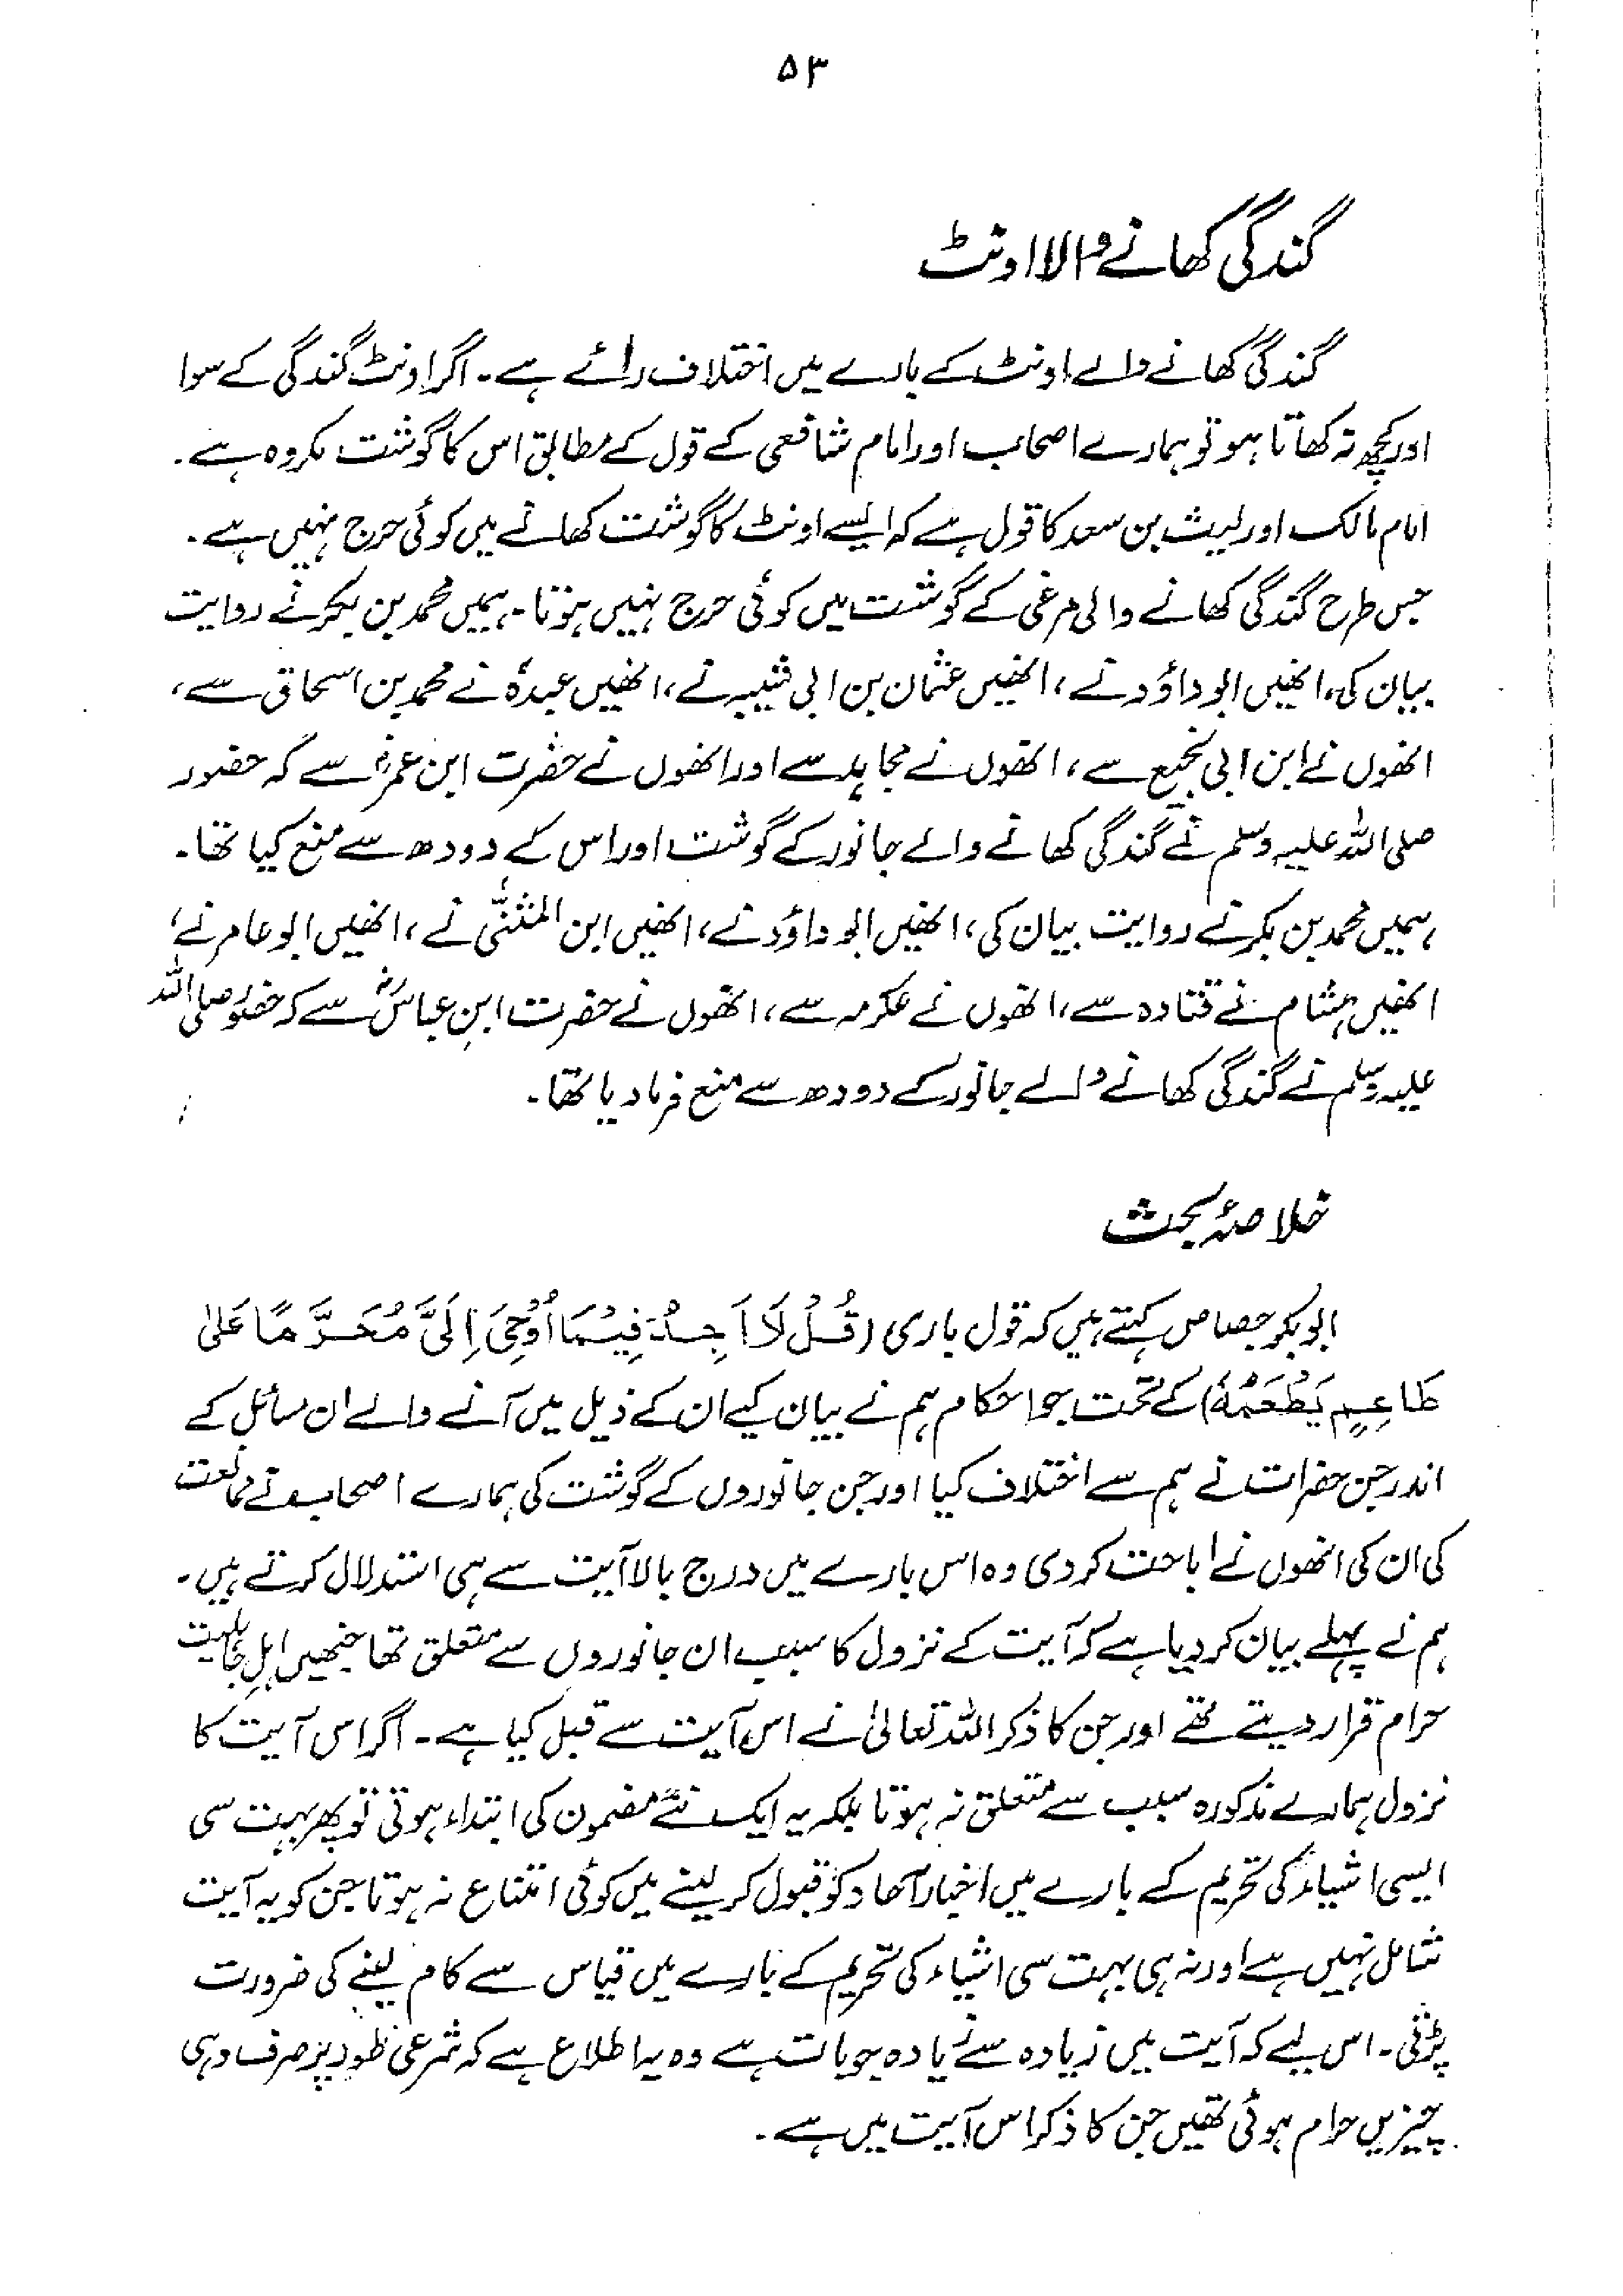 ۵۳
گندگی کھانے والا اونٹ
گندگی کھانے والے اونٹ کے بارے میں اختلاف رائے ہے۔ اگر اونٹ گندگی کے سوا
اور کچھ نہ کھاتا ہو تو ہمارے اصحاب اور امام شافعی کے قول کے مطابق اس کا گوشت مکروہ ہے۔
امام مالک اور لیث بن سعد کا قول ہے کہ ایسے اونٹ کا گوشت کھانے میں کوئی حرج نہیں ہے۔
جس طرح گندگی کھانے والی مرغی کے گوشت میں کوئی حرج نہیں ہوتا۔ ہمیں محمد بن بکر نے روایت
بیان کی، انھیں ابو داؤد نے، انھیں عثمان بن ابی شیبہ نے، انھیں عبدہ نے محمد بن اسحاق سے،
انھوں نے ابن ابی نجیح سے، انھوں نے مجاہد سے اور انھوں نے حضرت ابن عمرؓ سے کہ حضور
صلی اللہ علیہ وسلم نے گندگی کھانے والے جانور کے گوشت اور اس کے دودھ سے منع کیا تھا۔
ہمیں محمد بن بکر نے روایت بیان کی، انھیں ابو داؤد نے، انھیں ابن المثنیّٰ نے، انھیں ابو عامر نے،
انھیں ہشام نے قتادہ سے، انھوں نے عکرمہ سے، انھوں نے حضرت ابنِ عباسؓ سے کہ حضور صلی اللہ
علیہ وسلم نے گندگی کھانے والے جانور کے دودھ سے منع فرما دیا تھا۔
خلاصۂ بحث
ابوبکر جصاص کہتے ہیں کہ قول باری (قُلْ لَا اَجِدُ فِيْمَا اُوْحِيَ اِلَيَّ مُحَرَّمًا عَلٰى
طَاعِمٍ يَطْعَمُهٗ) کے تحت جو احکام ہم نے بیان کیے ان کے ذیل میں آنے والے ان مسائل کے
اندر جن حضرات نے ہم سے اختلاف کیا اور جن جانوروں کے گوشت کی ہمارے اصحاب نے ممانعت
کی ان کی انھوں نے اباحت کردی وہ اس بارے میں درج بالا آیت سے ہی استدلال کرتے ہیں۔
ہم نے پہلے بیان کر دیا ہے کہ آیت کے نزول کا سبب ان جانوروں سے متعلق تھا جنھیں اہلِ جاہلیت
حرام قرار دیتے تھے اور جن کا ذکر اللہ تعالیٰ نے اس آیت سے قبل کیا ہے۔ اگر اس آیت کا
نزول ہمارے مذکورہ سبب سے متعلق نہ ہوتا بلکہ یہ ایک نئے مضمون کی ابتداء ہوتی تو پھر بہت سی
ایسی اشیاء کی تحریم کے بارے میں اخبار آحاد کو قبول کر لینے میں کوئی امتناع نہ ہوتا جن کو یہ آیت
شامل نہیں ہے اور نہ ہی بہت سی اشیاء کی تحریم کے بارے میں قیاس سے کام لینے کی ضرورت
پڑتی۔ اس لیے کہ آیت میں زیادہ سے زیادہ جو بات ہے وہ یہ اطلاع ہے کہ شرعی طور پر صرف وہی
چیزیں حرام ہوئی تھیں جن کا ذکر اس آیت میں ہے۔